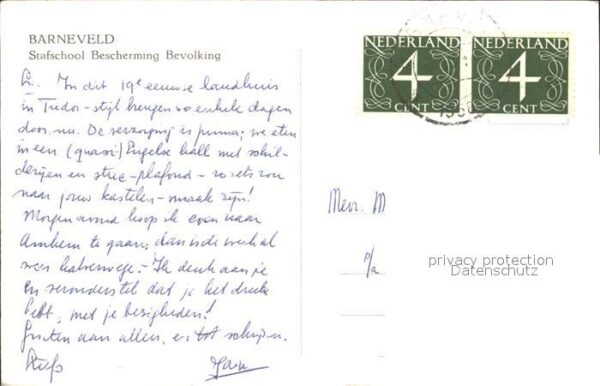 BARNEVELD
Stafschool Bescherming Bevolking
In dit 19e eeuwse landhuis
in Tudor-stijl brengen we enkele dagen
door nu. De verzorging is prima; we eten
in een (quasi) Engelse hall met schil-
derijen en stuc-plafond - zo iets zou
naar jouw kastelen-smaak zijn!
Morgen avond hoop ik even naar
Arnhem te gaan; dan is de week al
weer halverwege. - Ik denk aan je
en veronderstel dat je het druk
hebt, met je bezigheden!
Groeten aan allen, en tot schrijven.
NEDERLAND
4
CENT
NEDERLAND
4
CENT
Mevr. M
p/a
privacy protection
Datenschutz